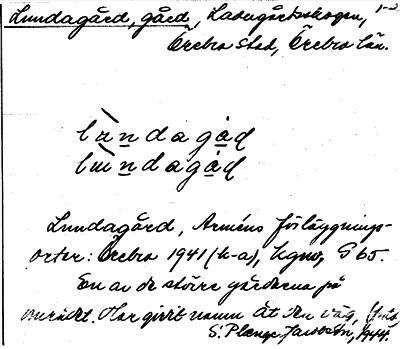 Lundagård, gård, Ladugårdsskogen, 1-2
Örebro stad, Örebro län.
lùndagåɖ
lɯ̀ndagåɖ
Lundagård, Arméns förläggnings-
orter: Örebro 1941 (h-a), S 65.
En av de större gårdarna på
området. Har givit namn åt en väg,
S. Plænge Jacobson, 1944.